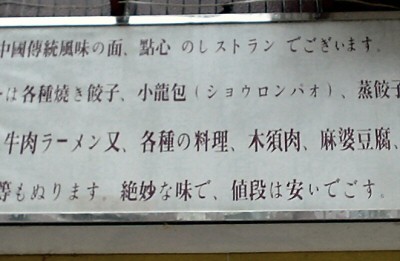 中國傳統風味の面、點心 のしストラン でございます。
は各種焼き餃子、小龍包(ショウロンパオ)、蒸餃子
牛肉ラーメン又、各種の料理、木須肉、麻婆豆腐、
等もぬります。絶妙な味で、値段は安いでごす。